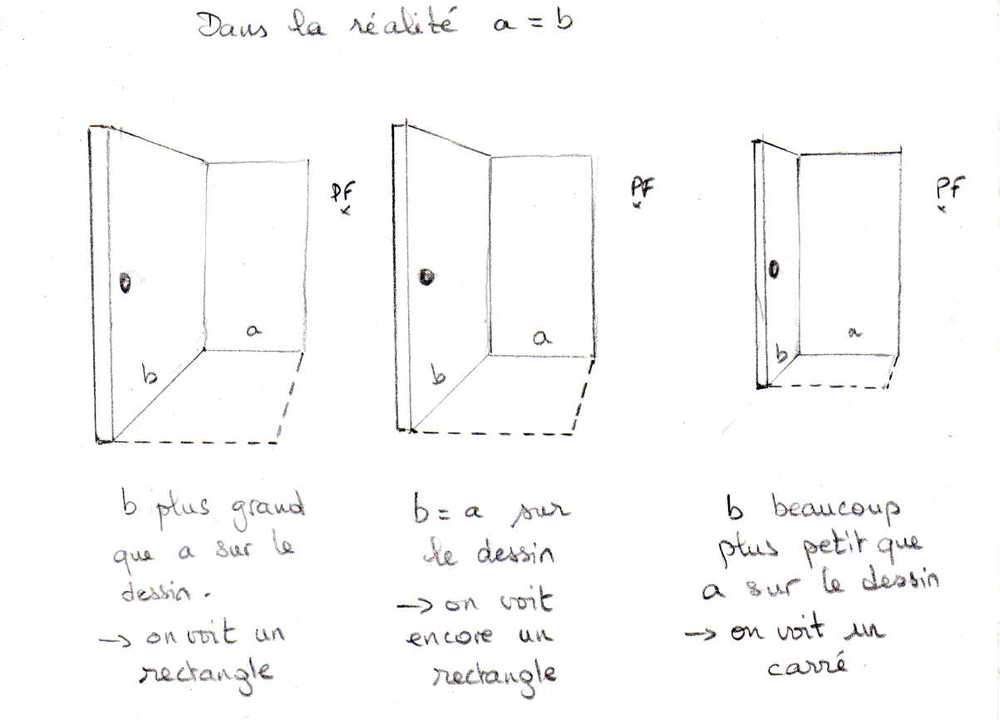 Dans la réalité a = b
PF
x
a
b
PF
x
a
b
PF
x
a
b
b plus grand
que a sur le
dessin.
→ on voit un
rectangle
b = a sur
le dessin
→ on voit
encore un
rectangle
b beaucoup
plus petit que
a sur le dessin
→ on voit un
carré